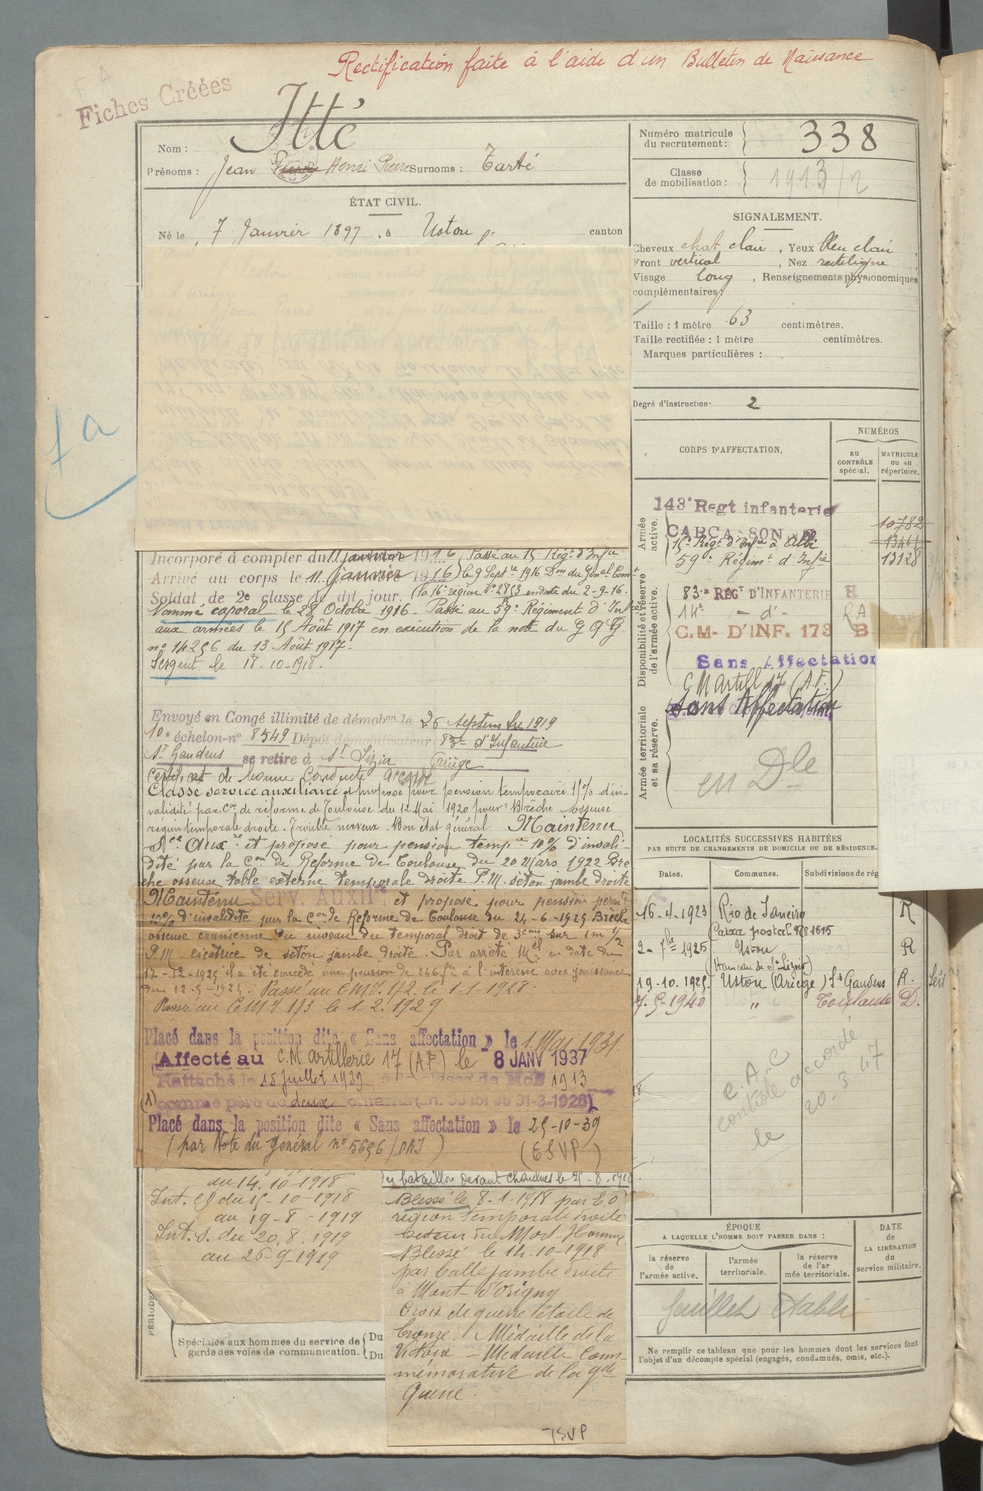 Rectification faite à l'aide d'un Bulletin de Naissance
Fiches Créées
Nom : Itté
Prénoms : Jean Henri Pierre Surnoms : Tarté
ÉTAT CIVIL.
Né le 7 Janvier 1897, à Ustou canton
Numéro matricule du recrutement : 338
Classe de mobilisation : 1913/2
SIGNALEMENT.
Cheveux chat. clair, Yeux bleu clair
Front vertical, Nez rectiligne
Visage long, Renseignements physionomiques
complémentaires :
Taille : 1 mètre 63 centimètres.
Taille rectifiée : 1 mètre centimètres.
Marques particulières :
Degré d'instruction : 2
fa
CORPS D'AFFECTATION.
NUMÉROS
AU CONTRÔLE spécial.
MATRICULE OU AU répertoire.
Armée active.
143e Regt infanterie
CARCASSONNE 10782
15e Régt d'Infie à Albi 13401
59e Régimt d'Infie 13128
Disponibilité et réserve de l'armée active.
83e REGt D'INFANTERIE R
14e - d° - RA
C.M- D'INF. 173 B
Sans Affectation
C M Artill 17 (A.F.)
Sans Affectation
Armée territoriale et sa réserve.
en Dle
Incorporé à compter du 11 janvier 1916 Passé au 15e Régt d'Infie
Arrivé au corps le 11 janvier 1916) le 9 Septbre 1916 Don du Génal Comt
Soldat de 2e classe le dit jour. (la 16e région No 2853 en date du 2-9-16.
Nommé caporal le 28 Octobre 1916 - Passé au 59e Régiment d'Infie
aux armées le 15 Août 1917 en exécution de la note du G Q G
no 14256 du 13 Août 1917.
Sergent le 18-10-1918.
Envoyé en Congé illimité de démobon le 26 septembre 1919
10e échelon no 8549 Dépôt démobilisateur 83e d'Infanterie
St Gaudens se retire à St Lizier Ariège
Certificat de bonne Conduite accordé
Classé service auxiliaire et proposé pour pension temporaire 15% d'in-
validité par Con de réforme de Toulouse du 12 Mai 1920 pour Brèche osseuse
région temporale droite. Trouble nerveux. Bon état général Maintenu
Sce Auxre et proposé pour pension tempre 10% d'invali-
dité par la Con de Réforme de Toulouse du 20 Mars 1922 Brè
che osseuse table externe temporale droite P.M. séton jambe droite
Maintenu Serv. Auxilre et proposé pour pension perm
10% d'invalidité par la Con de Réforme de Toulouse du 24-6-1925 Brèche
osseuse cranienne du niveau du temporal droit de 3cm sur 1m 1/2
P.M. cicatrice de séton jambe droite. Par arrêté Mel en date du
17-12-1925 il a été concédé une pension de à l'intéressé avec jouissance
du 12-5-1925. Passé au CMI. 172 le 1-1-1928.
Passé au CMI 173 le 1.2.1929
Placé dans la position dite « Sans affectation » le 1 Mai 1931
Affecté au C.M artillerie 17 (A.F) le 8 JANV 1937
Rattaché le 15 juillet 1939 à la classe de Mob 1913
(A) comme père de deux enfants (Art. 58 loi du 31-3-1928)
Placé dans la position dite « Sans affectation » le 25-10-39
(par Note du Général no 5696/ORJ) (TSVP)
LOCALITÉS SUCCESSIVES HABITÉES
PAR SUITE DE CHANGEMENTS DE DOMICILE OU DE RÉSIDENCE.
Dates. Communes. Subdivisions de rég
16.4.1923 Rio de Janeiro R
(Caixa postal No 1615
2-7bre 1925 Ustou R
(Hameau de St Lizier)
19.10.1925. Ustou (Ariège) St Gaudens A.
7.5-1940 " Toulouse D.
C.A.C
contrôle accordé
le 20.3 47
du 14.10.1918
Int. CI du 15-10-1918
au 19-8-1919
Int. S. du 20.8.1919
au 26-9-1919
du bataillon devant Chaulnes
Blessé le 8.1.1918 par E.O
région temporale droite
Secteur du Mort Homme
Blessé le 14-10-1918
par balle jambe droite
à Mont d'Origny
Croix de guerre étoile de
bronze. Médaille de la
Victoire - Médaille Com-
mémorative de la gde
Guerre.
TSVP
PÉRIODES
Spéciales aux hommes du service de garde des voies de communication. Du
Du
ÉPOQUE
A LAQUELLE L'HOMME DOIT PASSER DANS :
la réserve de l'armée active.
l'armée territoriale.
la réserve de l'armée territoriale.
DATE de LA LIBÉRATION du service militaire.
feuillet établi
Ne remplir ce tableau que pour les hommes dont les services font
l'objet d'un décompte spécial (engagés, condamnés, omis, etc.).